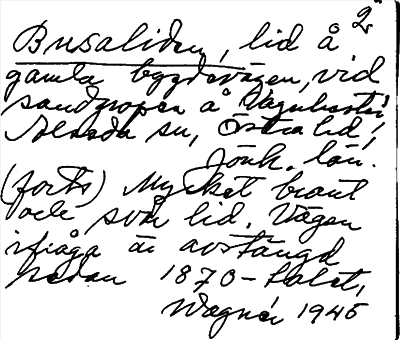 2.
Busaliden, lid å
gamla bygdevägen, vid
sandgropen å
Alseda sn, Östra hd,
Jönk. län.
(forts) Mycket brant
och svår lid. Vägen
ifråga är avstängd
sedan 1870-talet,
Wagnér 1945